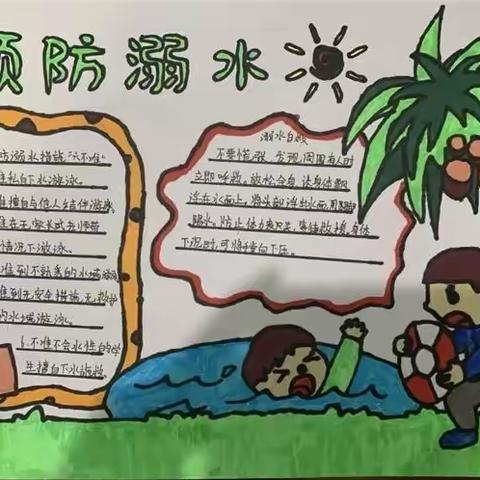 预防溺水
防溺水措施“六不准”
准私自下水游泳。
准擅自与他人结伴游泳
准在无家长或老师带
情况下游泳。
准到不熟悉的水域游泳
准到无安全措施、无救护
的水域游泳。
6.不准不会水性的学
生擅自下水施救
溺水自救
不要慌张，发现周围有人时
立即呼救，放松全身，让身体飘
浮在水面上，将头部浮出水面，用脚
踢水，防止体力丧失，等待救援，身体
下沉时，可将手掌向下压。